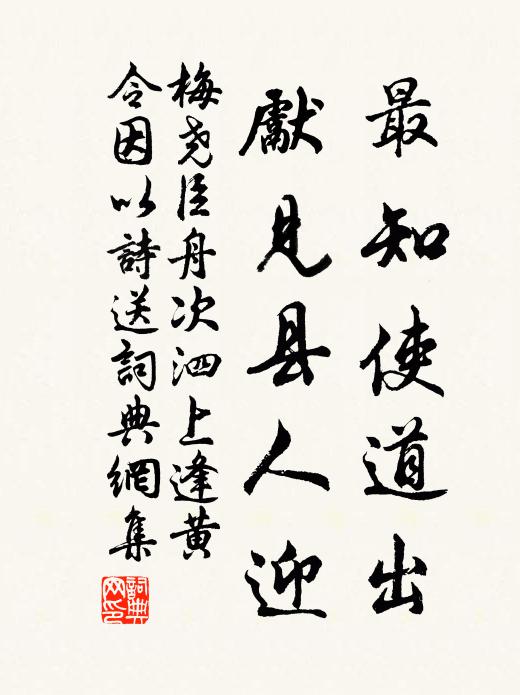 最知使道出
獻見县人迎
梅尧臣舟次泗上逢黄
令因以詩送詞典網集
詞典
网印